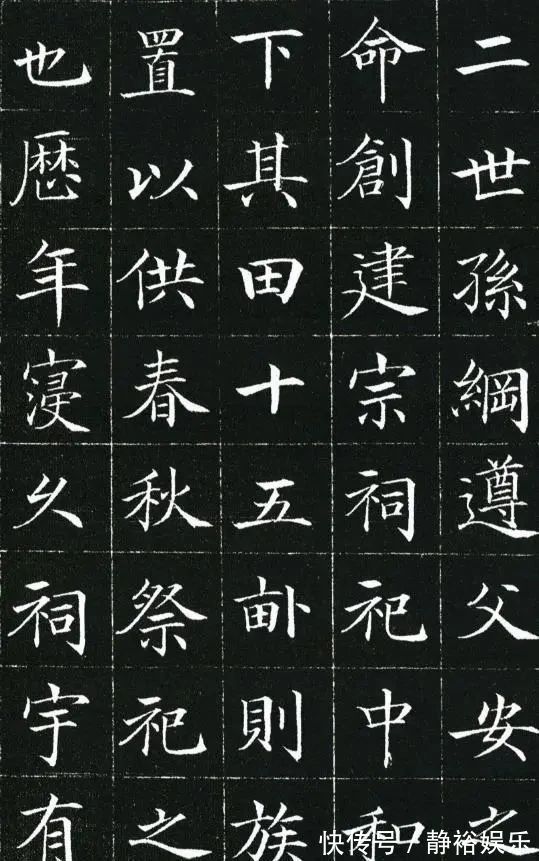 二世孫綱遵父安之
命創建宗祠祀中和
下其田十五畝則族
置以供春秋祭祀之
也歷年寖久祠宇有
快传号/静裕娱乐